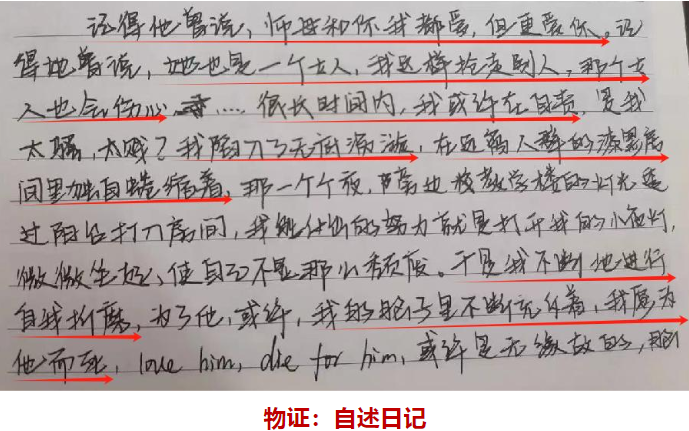 记得他曾说，师母和你我都爱，但更爱你。记
得他曾说，她也是一个女人，我这样抢走别人，那个女
人也会伤心，……很长时间内，我或许在自责，是我
太骚，太贱？我陷入了无底漩涡，在远离人群的漆黑房
间里独自蜷缩着，那一个个夜，隔也校教学楼的灯光透
过阳台打入房间，我能付出的努力就是打开我的小夜灯，
微微坐起，使自己不是那么颓废。于是我不断地进行
自我折磨，为了他，或许，我的脑子里不断充斥着，我愿为
他而死，love him, die for him, 或许是无缘故的，
物证：自述日记